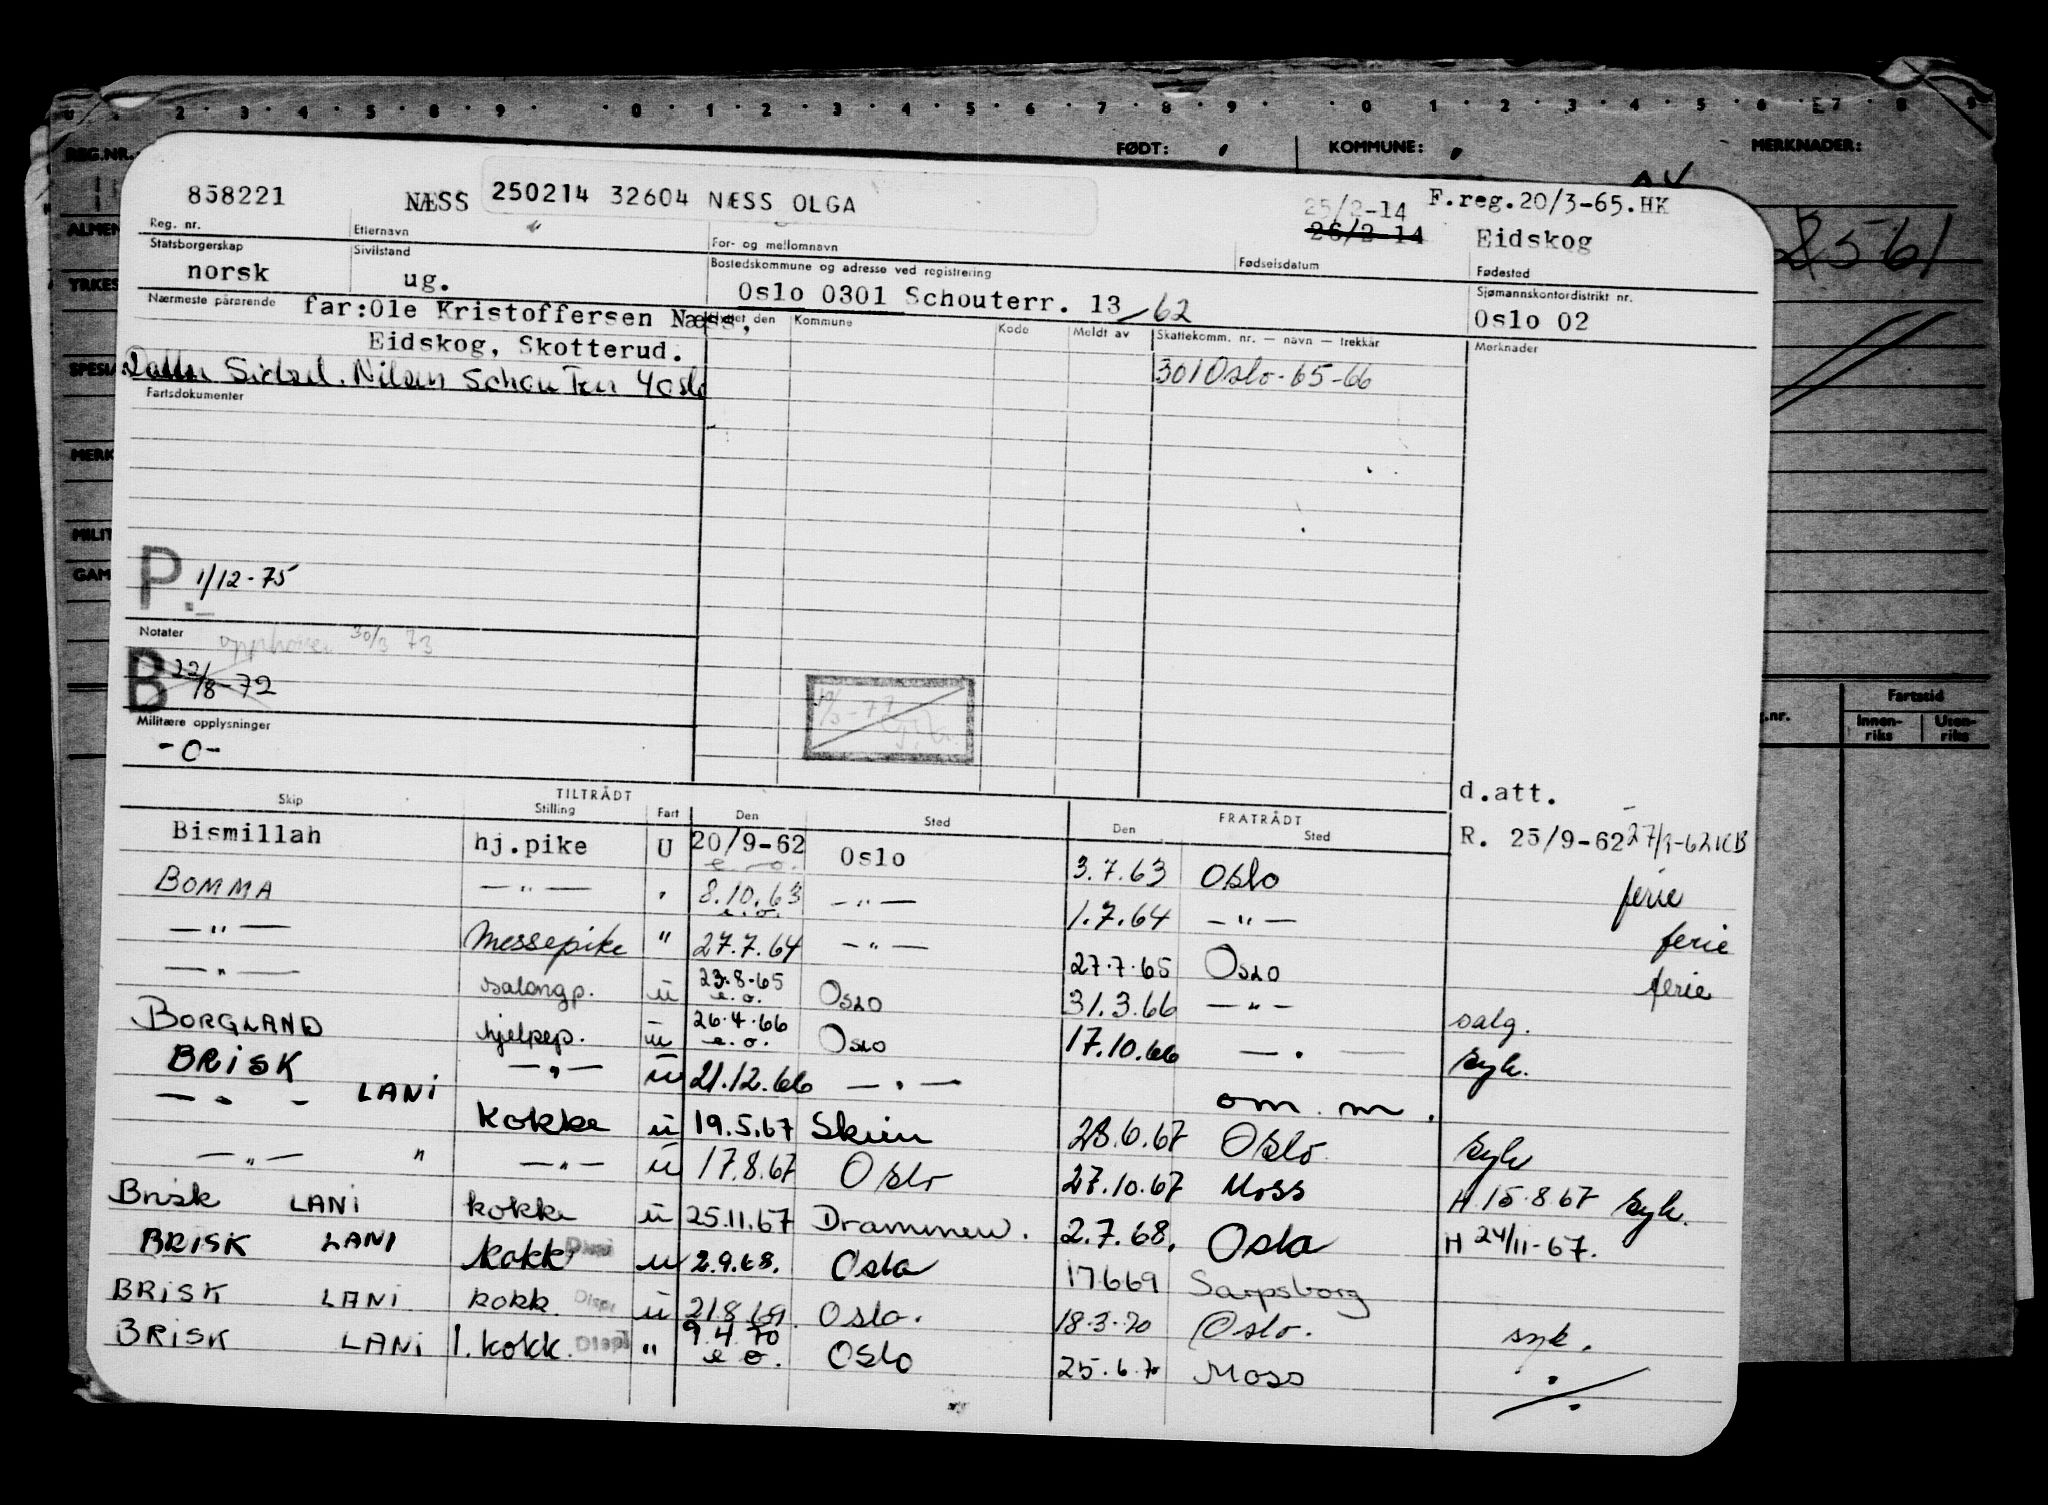 U 2 3 4 5 8 9 0 1 2 3 4 5 6 7 8 9 0 1 2 3 4 5 6 7 8 9
REG.NR. FØDT: KOMMUNE: MERKNADER:
858221 NÆSS 250214 32604 NÆSS OLGA 25/2-14 F.reg.20/3-65.HK
26/2-14 Eidskog
Reg. nr. Etternavn For- og mellomnavn Fødselsdatum Fødested
Statsborgerskap Sivilstand Bostedskommune og adresse ved registrering Sjømannskontordistrikt nr.
norsk ug. Oslo 0301 Schouterr. 13 /62 Oslo 02
Nærmeste pårørende Flyttet den Kommune Kode Meldt av Skattekomm. nr. — navn — trekkår Merknader
far:Ole Kristoffersen Næss,
Eidskog, Skotterud.
Nilsen Schou Terr 4 Oslo
301 Oslo-65-66
Fartsdokumenter
P. 1/12-75
Notater
opphører 30/3 73
B 22/8-72
Militære opplysninger
-0-
d.att.
TILTRÅDT FRATRÅDT
Skip Stilling Fart Den Sted Den Sted
Bismillah hj.pike U 20/9-62 e.o. Oslo 3.7.63 Oslo R. 25/9-62 27/9-62 KB ferie
BOMMA —"— " 8.10.63 e.o. —"— 1.7.64 —"— ferie
—"— Messepike " 27.7.64 —"— 27.7.65 Oslo ferie
—"— salongp. u 23.8.65 e.o. Oslo 31.3.66 —"— salg.
BORGLAND hjelpep. u 26.4.66 e.o. Oslo 17.10.66 —"— syk.
BRISK —"— u 21.12.66 —"— om. m.
—"— LANI Kokke u 19.5.67 Skien 28.6.67 Oslo syk
—"— " —"— u 17.8.67 Oslo 27.10.67 Moss H 15.8.67 syk.
Brisk LANI kokke u 25.11.67 Drammen. 2.7.68. Oslo H 24/11-67.
BRISK LANI kokk Disp u 2.9.68. Oslo 17669 Sarpsborg
BRISK LANI kokk. Disp u 21.8.69. Oslo. 18.3.70 Oslo. syk.
BRISK LANI 1. kokk. Disp " 9.4.70 e.o. Oslo 25.6.70 Moss
Fartstid
Innenriks Utenriks